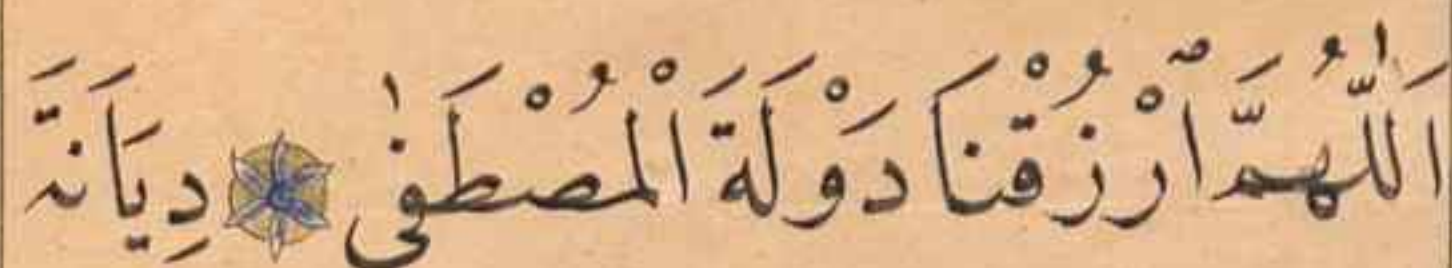 اَللّٰهُمَّ ٱرْزُقْنَا دَوْلَةَ الْمُصْطَفٰى دِيَانَةَ